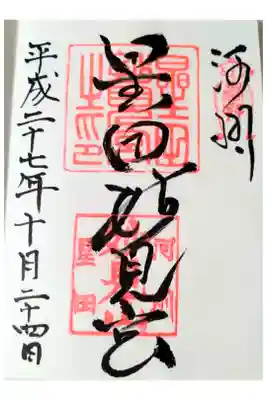 河州
星田妙見宮
平成二十七年十月二十四日